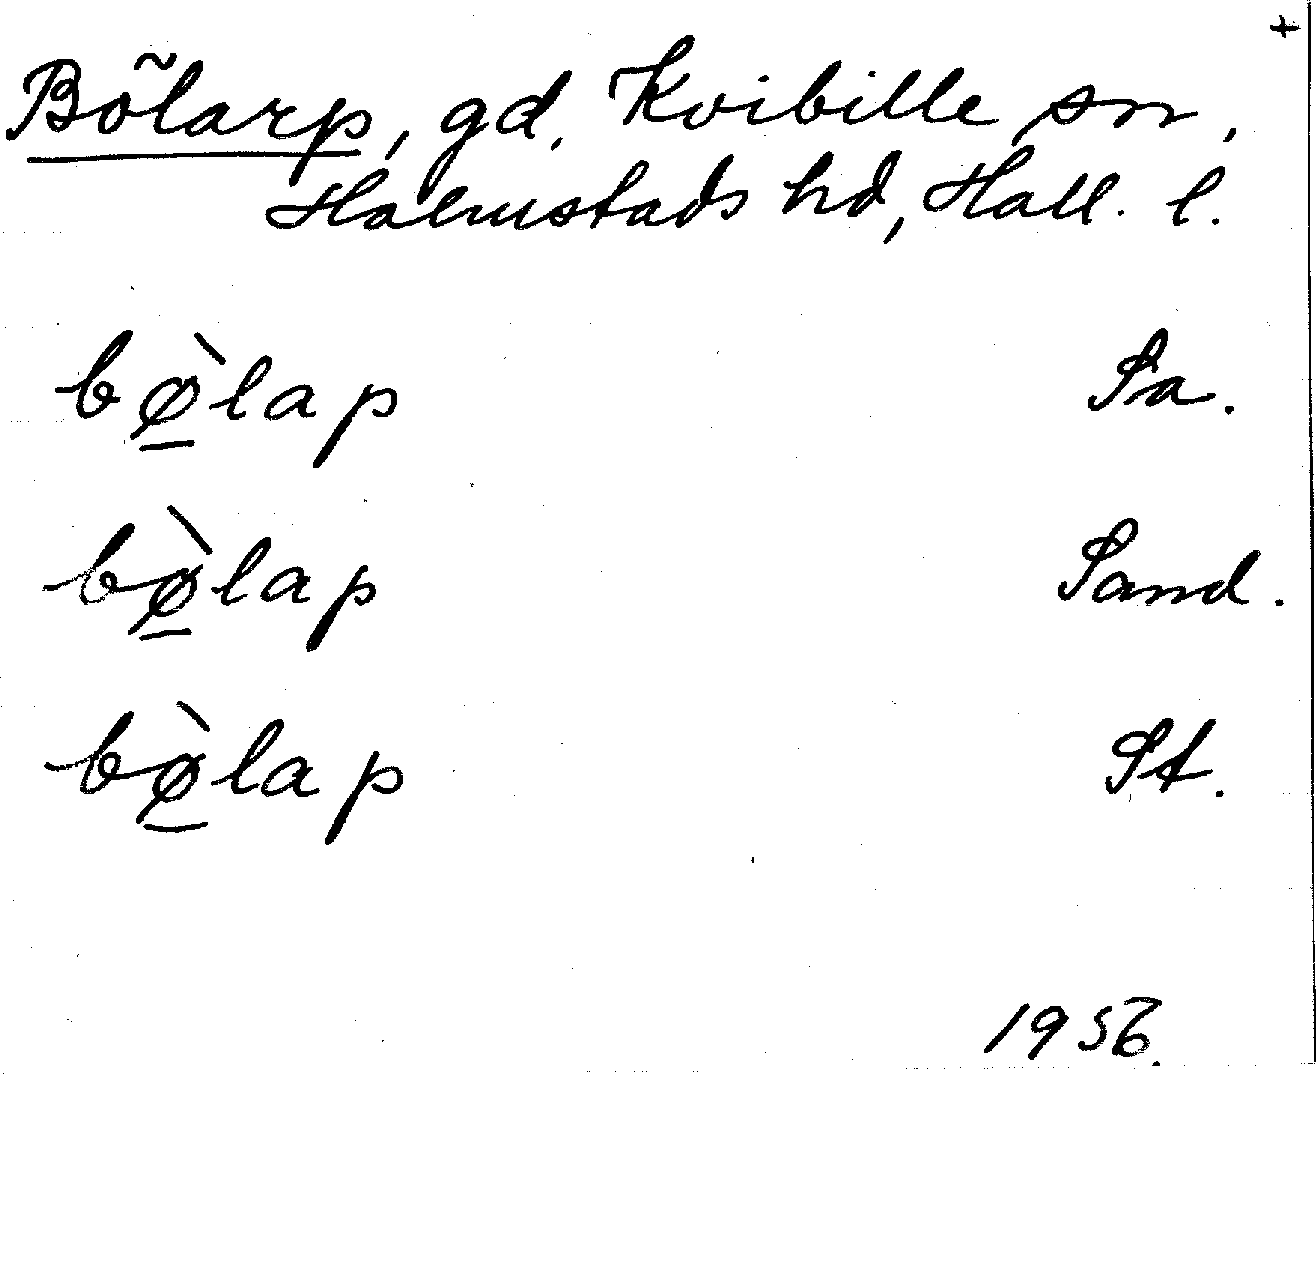 +
Bõlarp, gd, Kvibille sn,
Halmstads hd, Hall. l.
bø̱̀lap Sa.
bø̱̀lap Sand.
bø̱̀lap St.
1956.